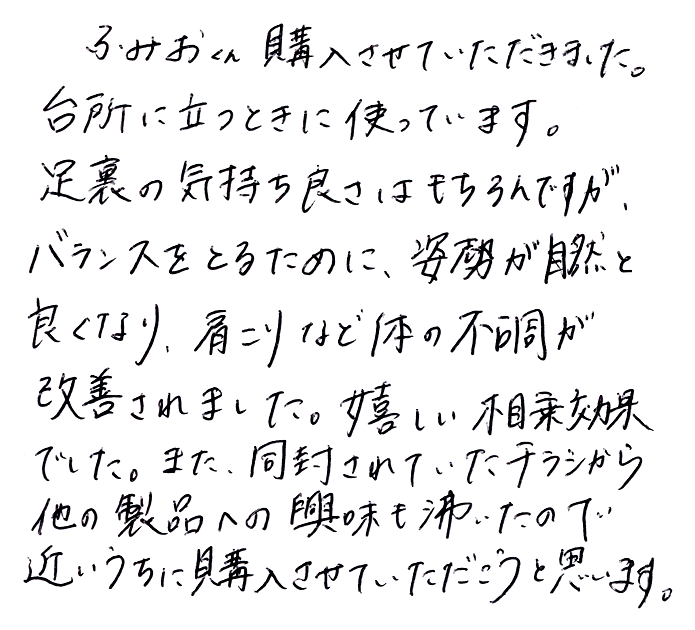 ふみおくん購入させていただきました。
台所に立つときに使っています。
足裏の気持ち良さはもちろんですが、
バランスをとるために、姿勢が自然と
良くなり、肩こりなど体の不調が
改善されました。嬉しい相乗効果
でした。また、同封されていたチラシから
他の製品への興味も沸いたので
近いうちに購入させていただこうと思います。